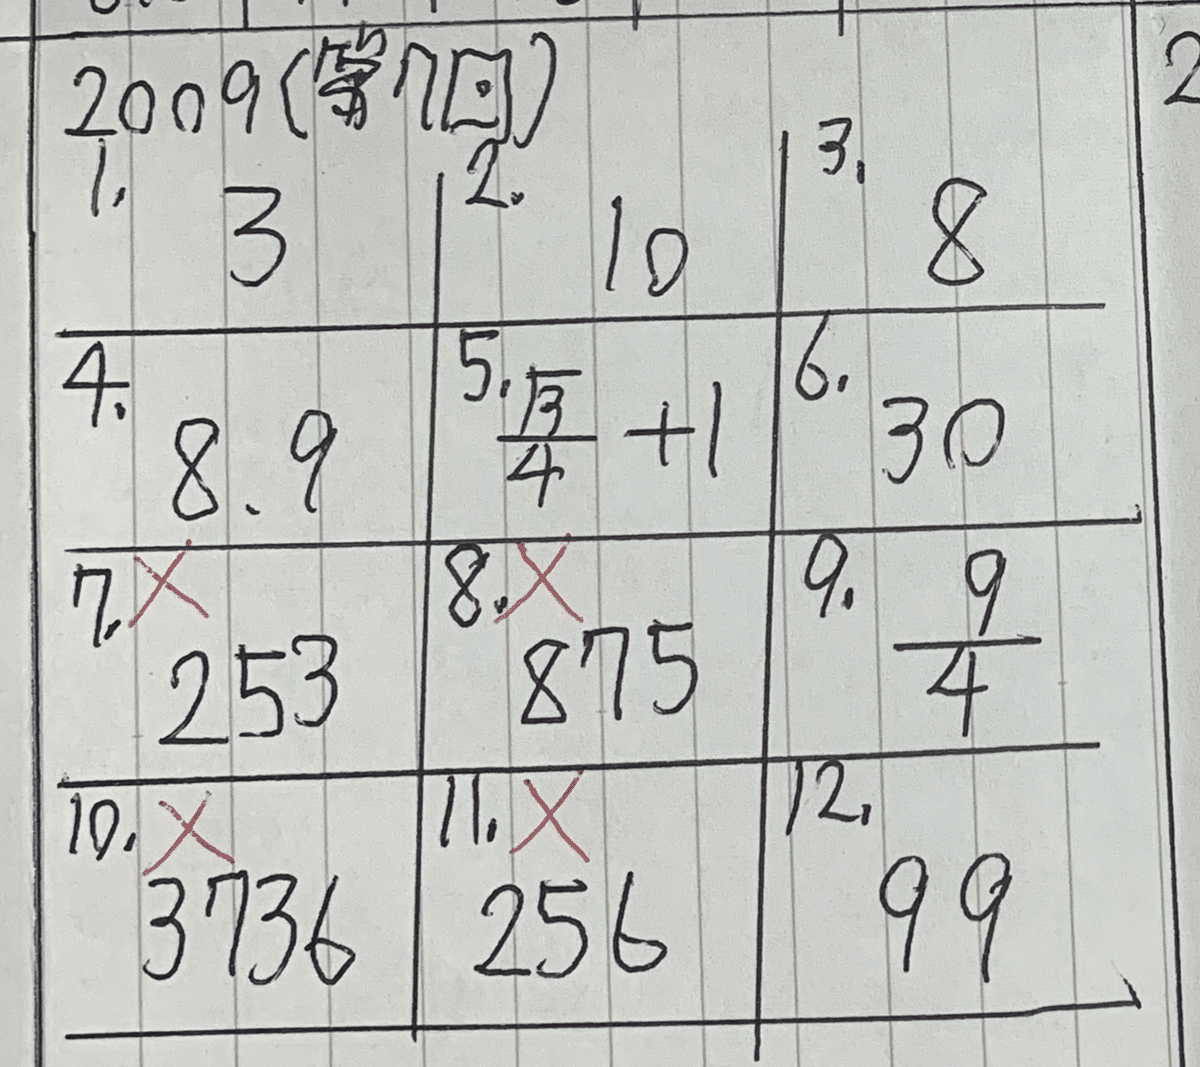 2009(第7回)
1. 3
2. 10
3. 8
4. 8.9
5. √3/4 +1
6. 30
7. × 253
8. × 875
9. 9/4
10. × 3736
11. × 256
12. 99
2